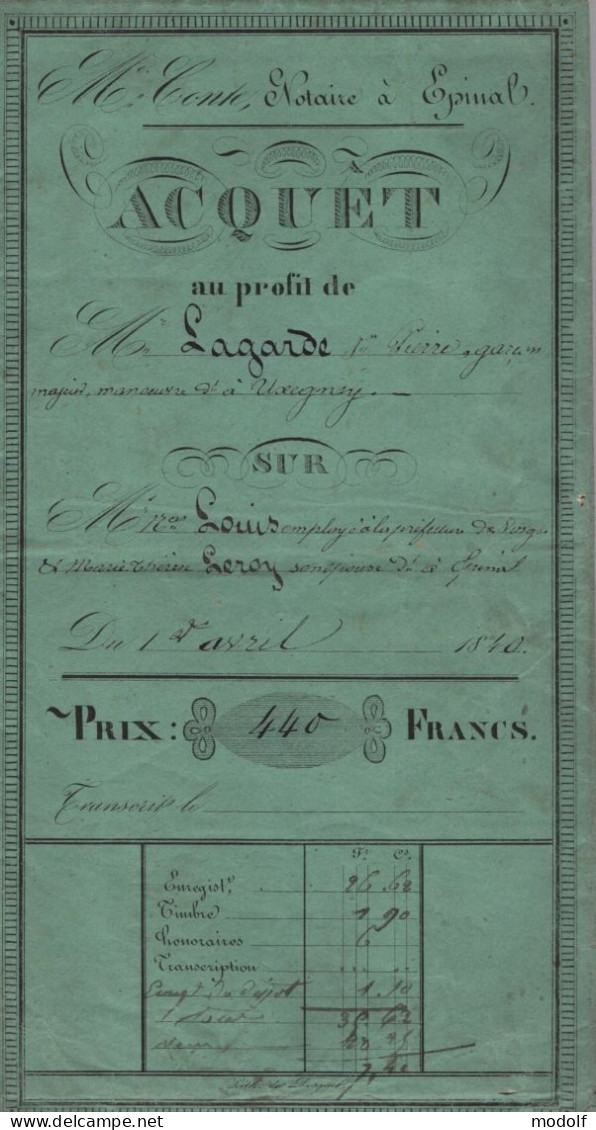 Me. Conte, Notaire à Epinal.
ACQUÊT
au profit de
Mr. Lagarde Pierre, garçon
majeur, manœuvre dt. à Uxegney.
SUR
Mr. Louis employé à la préfecture des Vosges
& Marie Thérèse Leroy son épouse dt. à Epinal
Du 1er avril 1840.
PRIX : 440 FRANCS.
Transcrit le
F. C.
Enregist. 26.62
Timbre 1.90
honoraires 6
Transcription
1.10
35 62
7,
modolf
www.delcampe.net